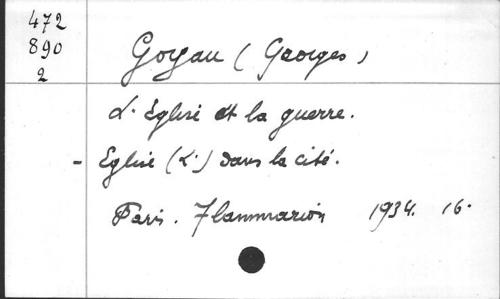 472
890
2
Goyau (Georges)
L'Eglise et la guerre.
- Eglise (L') dans la cité.
Paris. Flammarion 1934. 16.